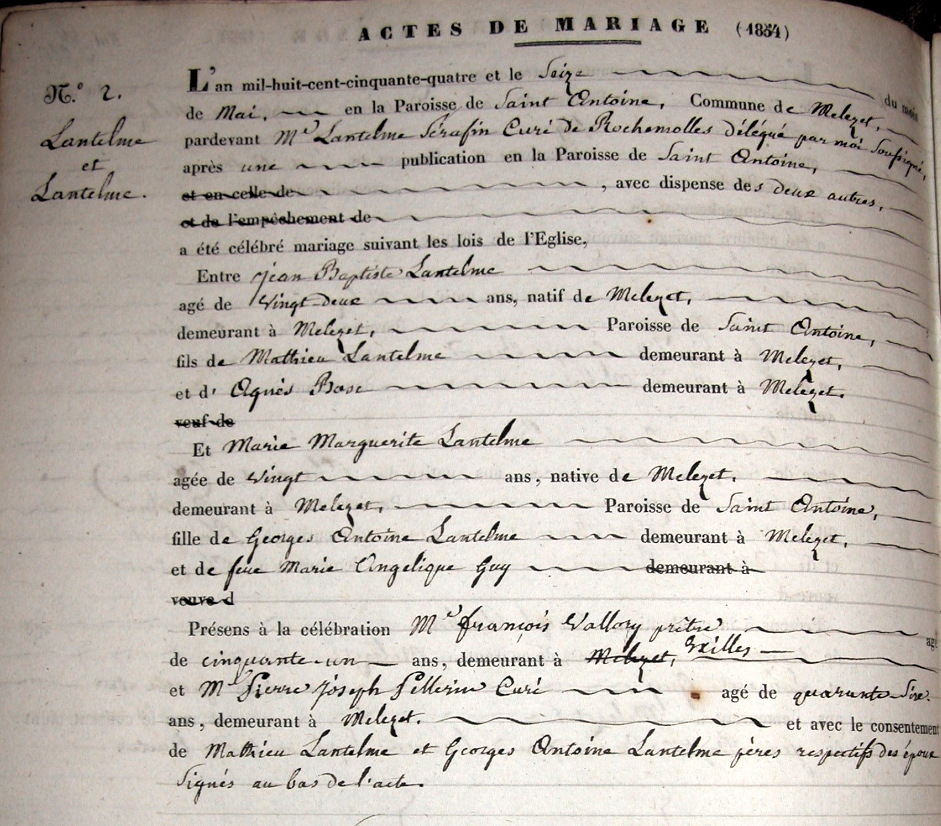 ACTES DE MARIAGE (1854)
N.º 2.
Lantelme
et
Lantelme.
L'an mil-huit-cent-cinquante-quatre et le Seize du mois
de Mai, en la Paroisse de Saint Antoine, Commune de Melezet,
pardevant Mr Lantelme Sérafin Curé de Rochemolles délégué par moi Soussigné,
après une publication en la Paroisse de Saint Antoine,
et en celle de , avec dispense des deux autres,
et de l'empêchement de
a été célébré mariage suivant les lois de l'Eglise,
Entre Jean Baptiste Lantelme
agé de Vingt deux ans, natif de Melezet,
demeurant à Melezet, Paroisse de Saint Antoine,
fils de Mathieu Lantelme demeurant à Melezet,
et d' Agnès Bosc demeurant à Melezet.
veuf de
Et Marie Marguerite Lantelme
agée de Vingt ans, native de Melezet,
demeurant à Melezet, Paroisse de Saint Antoine,
fille de Georges Antoine Lantelme demeurant à Melezet,
et de feue Marie Angelique Guy demeurant à
veuve d
Présens à la célébration Mr François Vallory prêtre agé
de cinquante-un ans, demeurant à Melezet, Exilles
et Mr Pierre Joseph Pellerin Curé agé de quarante Six
ans, demeurant à Melezet. et avec le consentement
de Mathieu Lantelme et Georges Antoine Lantelme pères respectifs des époux
signés au bas de l'acte.